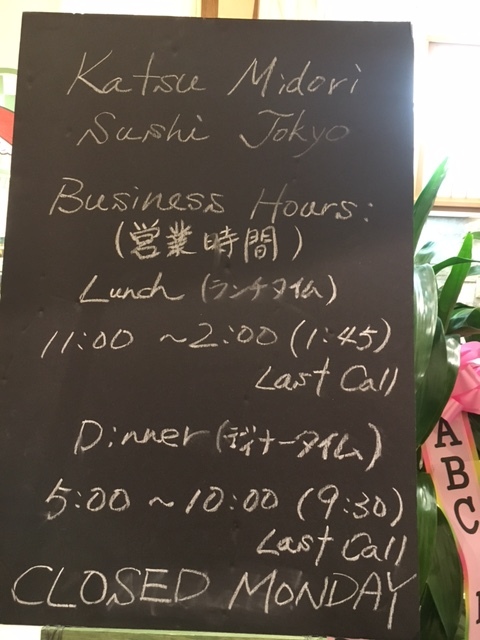 Katsu Midori
Sushi Tokyo
Business Hours:
(営業時間)
Lunch (ランチタイム)
11:00 ~2:00 (1:45)
Last Call
Dinner (ディナータイム)
5:00 ~10:00 (9:30)
Last Call
CLOSED MONDAY
ABC